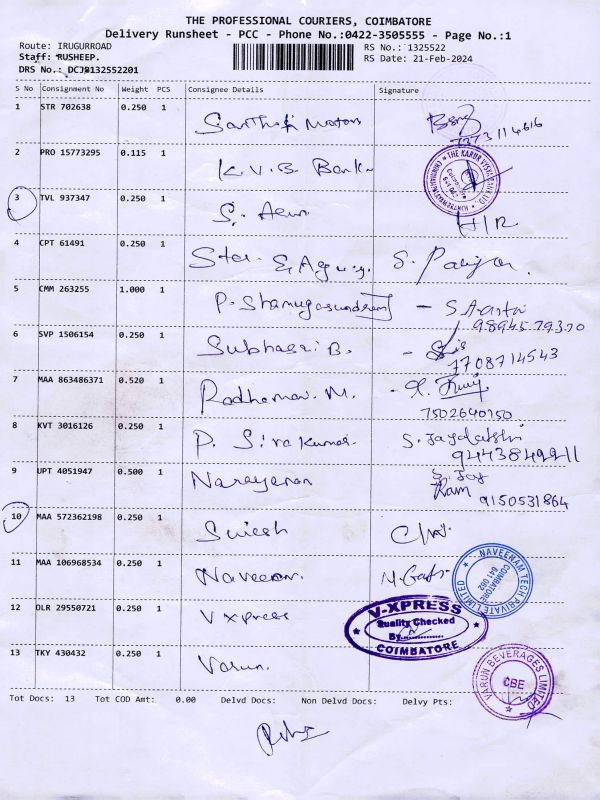 THE PROFESSIONAL COURIERS, COIMBATORE
Delivery Runsheet - PCC - Phone No.:0422-3505555 - Page No.:1
Route: IRUGURROAD RS No.: 1325522
Staff: RUSHEEP. RS Date: 21-Feb-2024
DRS No.: DCJ8132552201
S No Consignment No Weight PCS Consignee Details Signature
1 STR 702638 0.250 1 Santhosh Motors
7373114616
2 PRO 15773295 0.115 1 K.V.B. Bank
THE KARUR VYSYA BANK LTD
3 TVL 937347 0.250 1 S.
H/R
4 CPT 61491 0.250 1 Star
5 CMM 263255 1.000 1 P. Shanugasundram - S.
6 SVP 1506154 0.250 1 Subhasri B.
7708714543
7 MAA 863486371 0.520 1 M.
7502640150
8 KVT 3016126 0.250 1 P. Sivakumar S.
9 UPT 4051947 0.500 1 Narayanan
9150531864
10 MAA 572362198 0.250 1 Suresh
11 MAA 106968534 0.250 1 Naveenam
NAVEENAM TECH PRIVATE LIMITED
COIMBATORE
641 062
12 OLR 29550721 0.250 1 V Xpress
V-XPRESS
Quality Checked
By
COIMBATORE
13 TKY 430432 0.250 1 Varun
VARUN BEVERAGES LIMITED
CBE
Tot Docs: 13 Tot COD Amt: 0.00 Delvd Docs: Non Delvd Docs: Delvy Pts: